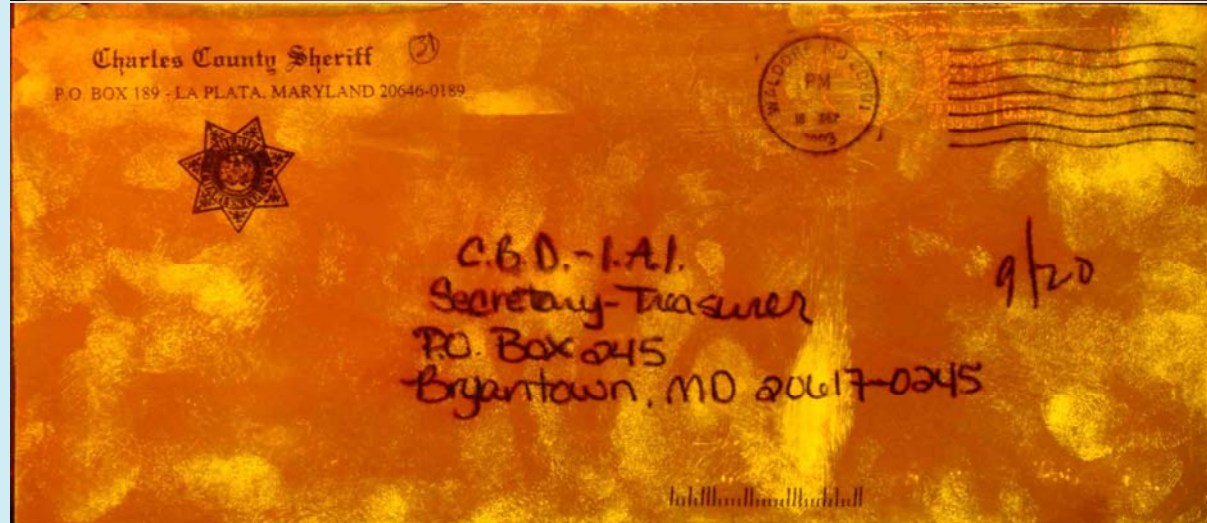 Charles County Sheriff
31
P.O. BOX 189 - LA PLATA, MARYLAND 20646-0189
WALDORF, MD
PM
18 SEP
C.B.D.-I.A.I.
Secretary-Treasurer
P.O. Box 245
Bryantown, MD 20617-0245
9/20